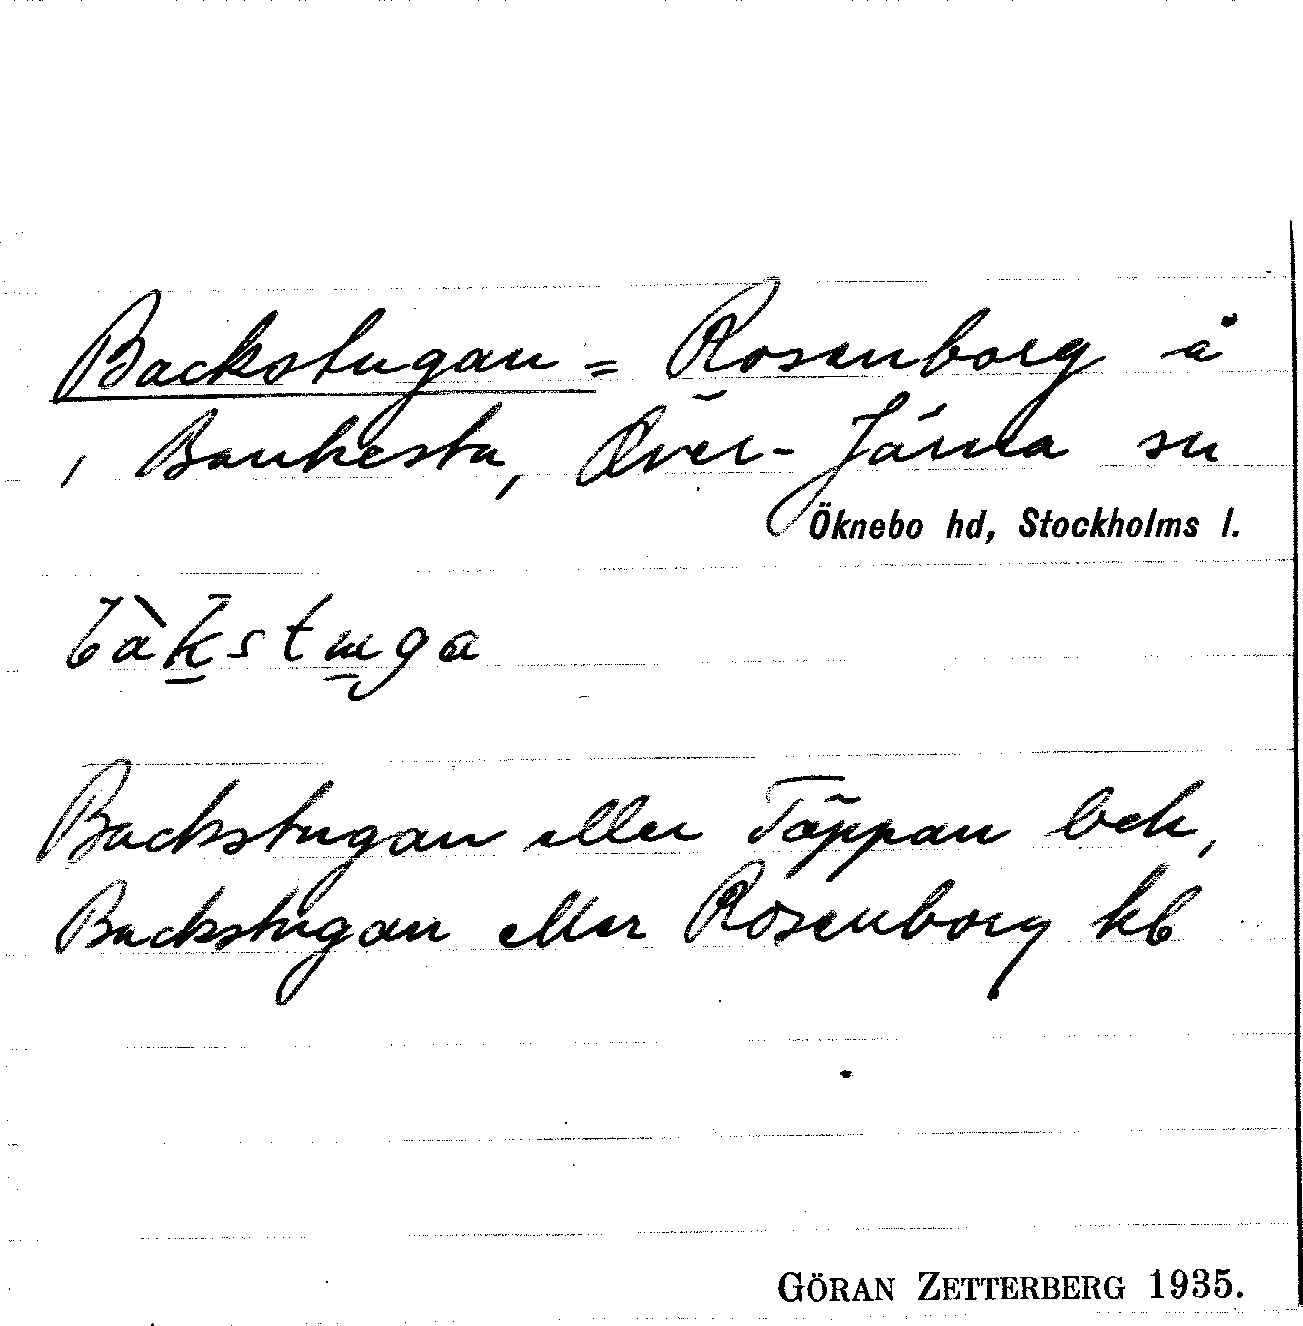 Backstugan = Rosenborg å
, Bankesta, Över-Järna sn
Öknebo hd, Stockholms l.
bàkstɯga
Backstugan eller Täppan bek,
Backstugan eller Rosenborg kb
GÖRAN ZETTERBERG 1935.